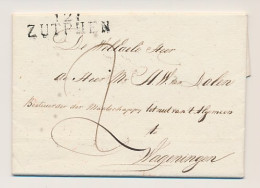 121
ZUTPHEN
De WelEdele Heer
de Heer Mr.
Bestuurder der Maatschappij tot nut van 't Algemeen
te
Wageningen